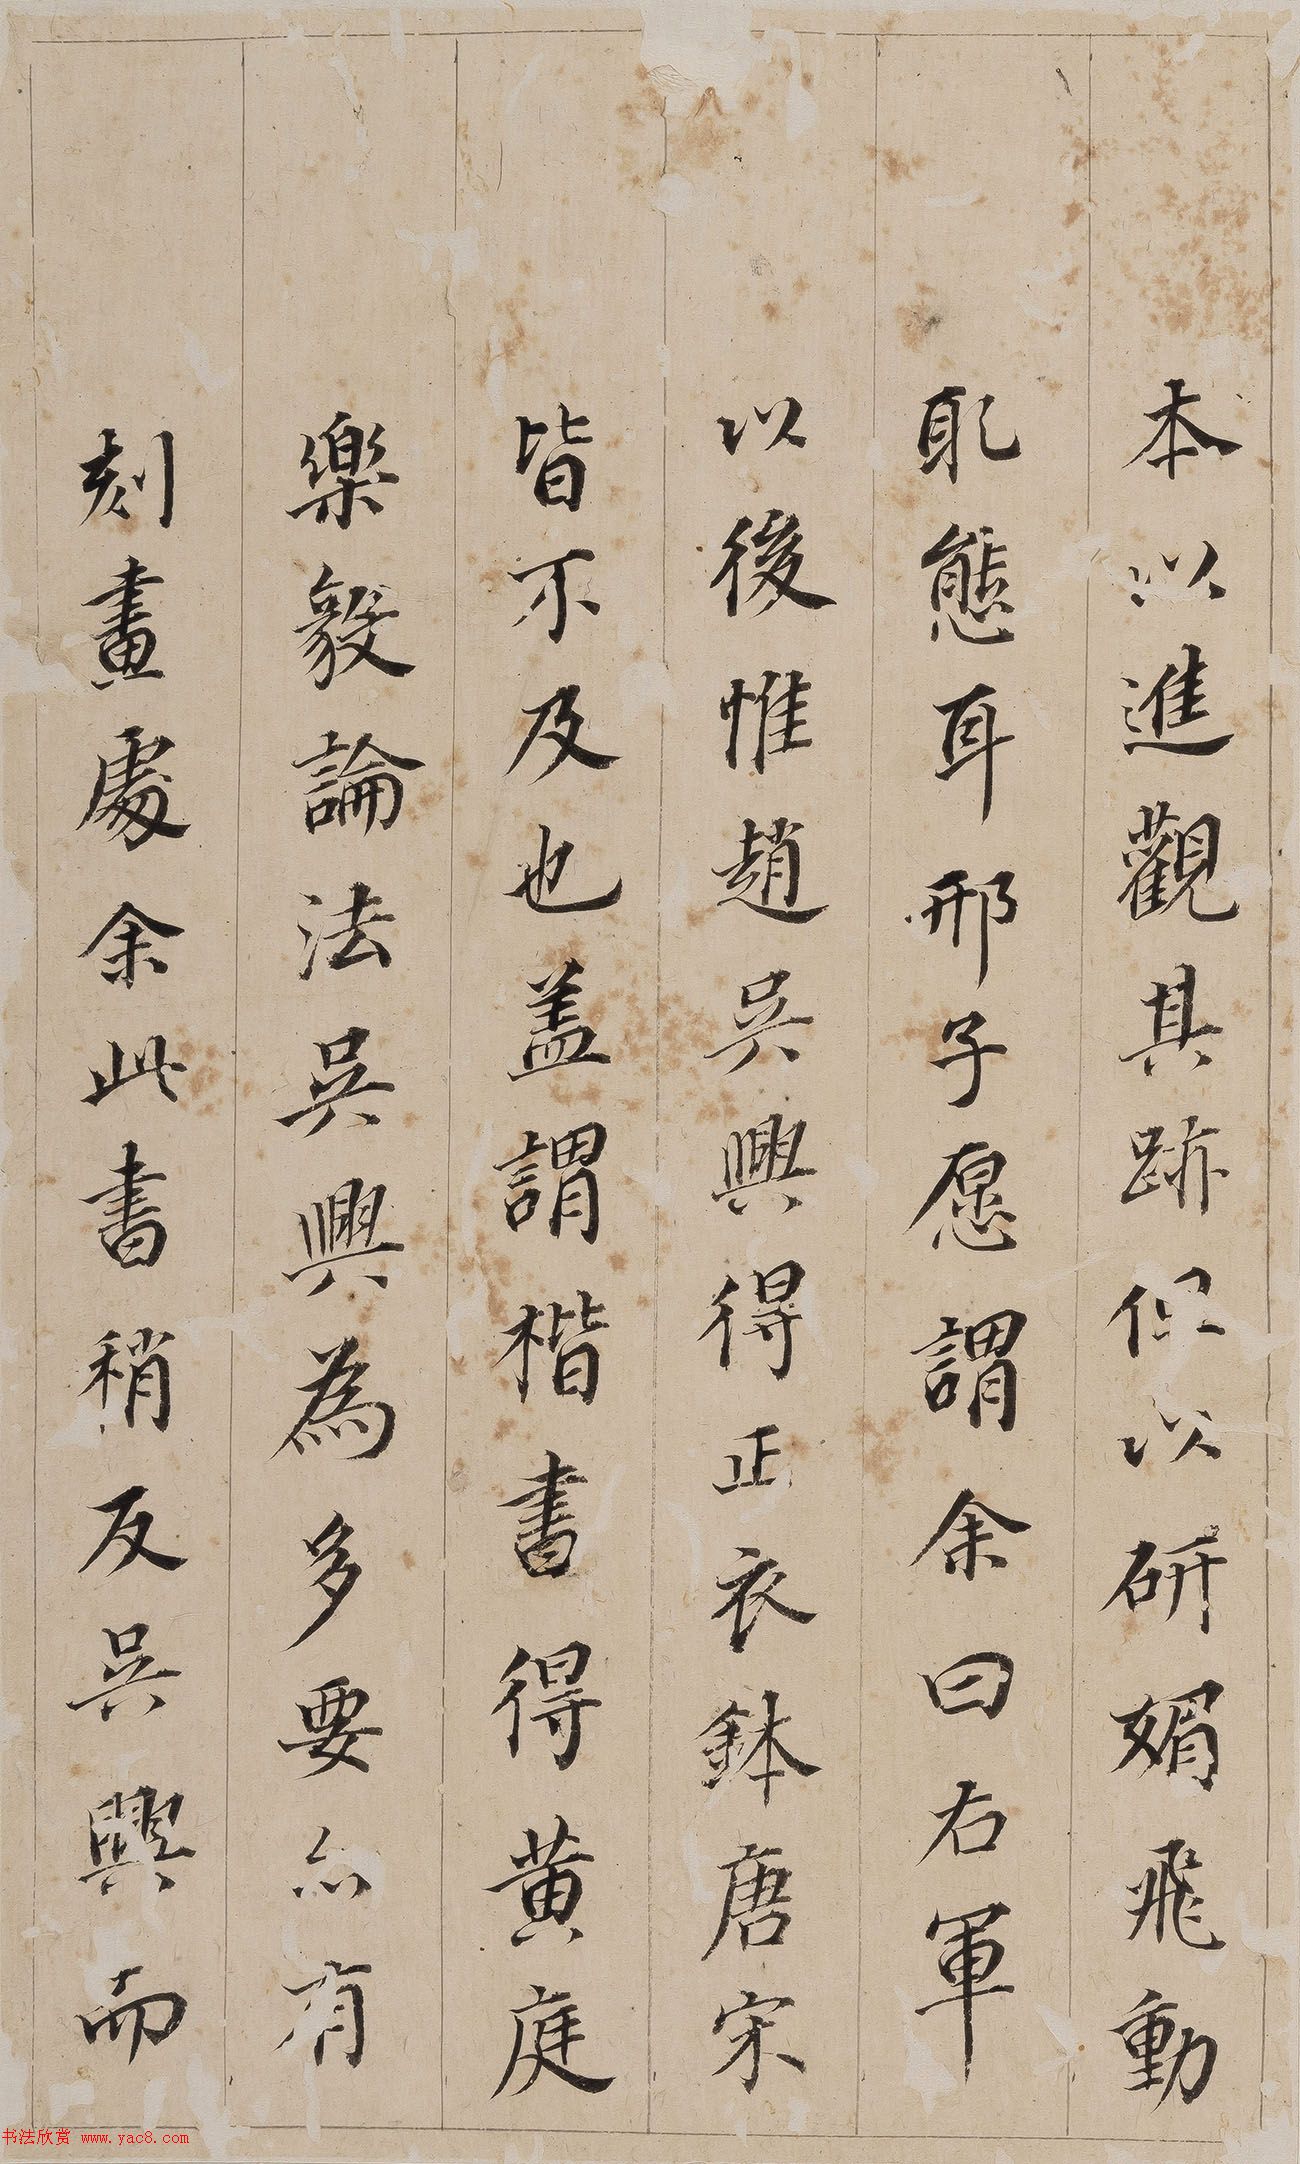 本以進觀其跡但以研媚飛動
取態耳邢子愿謂余曰右軍
以後惟趙吳興得正衣鉢唐宋
皆不及也盖謂楷書得黄庭
樂毅論法吳興為多要亦有
刻畫處余此書稍反吳興而
书法欣赏 www.yac8.com